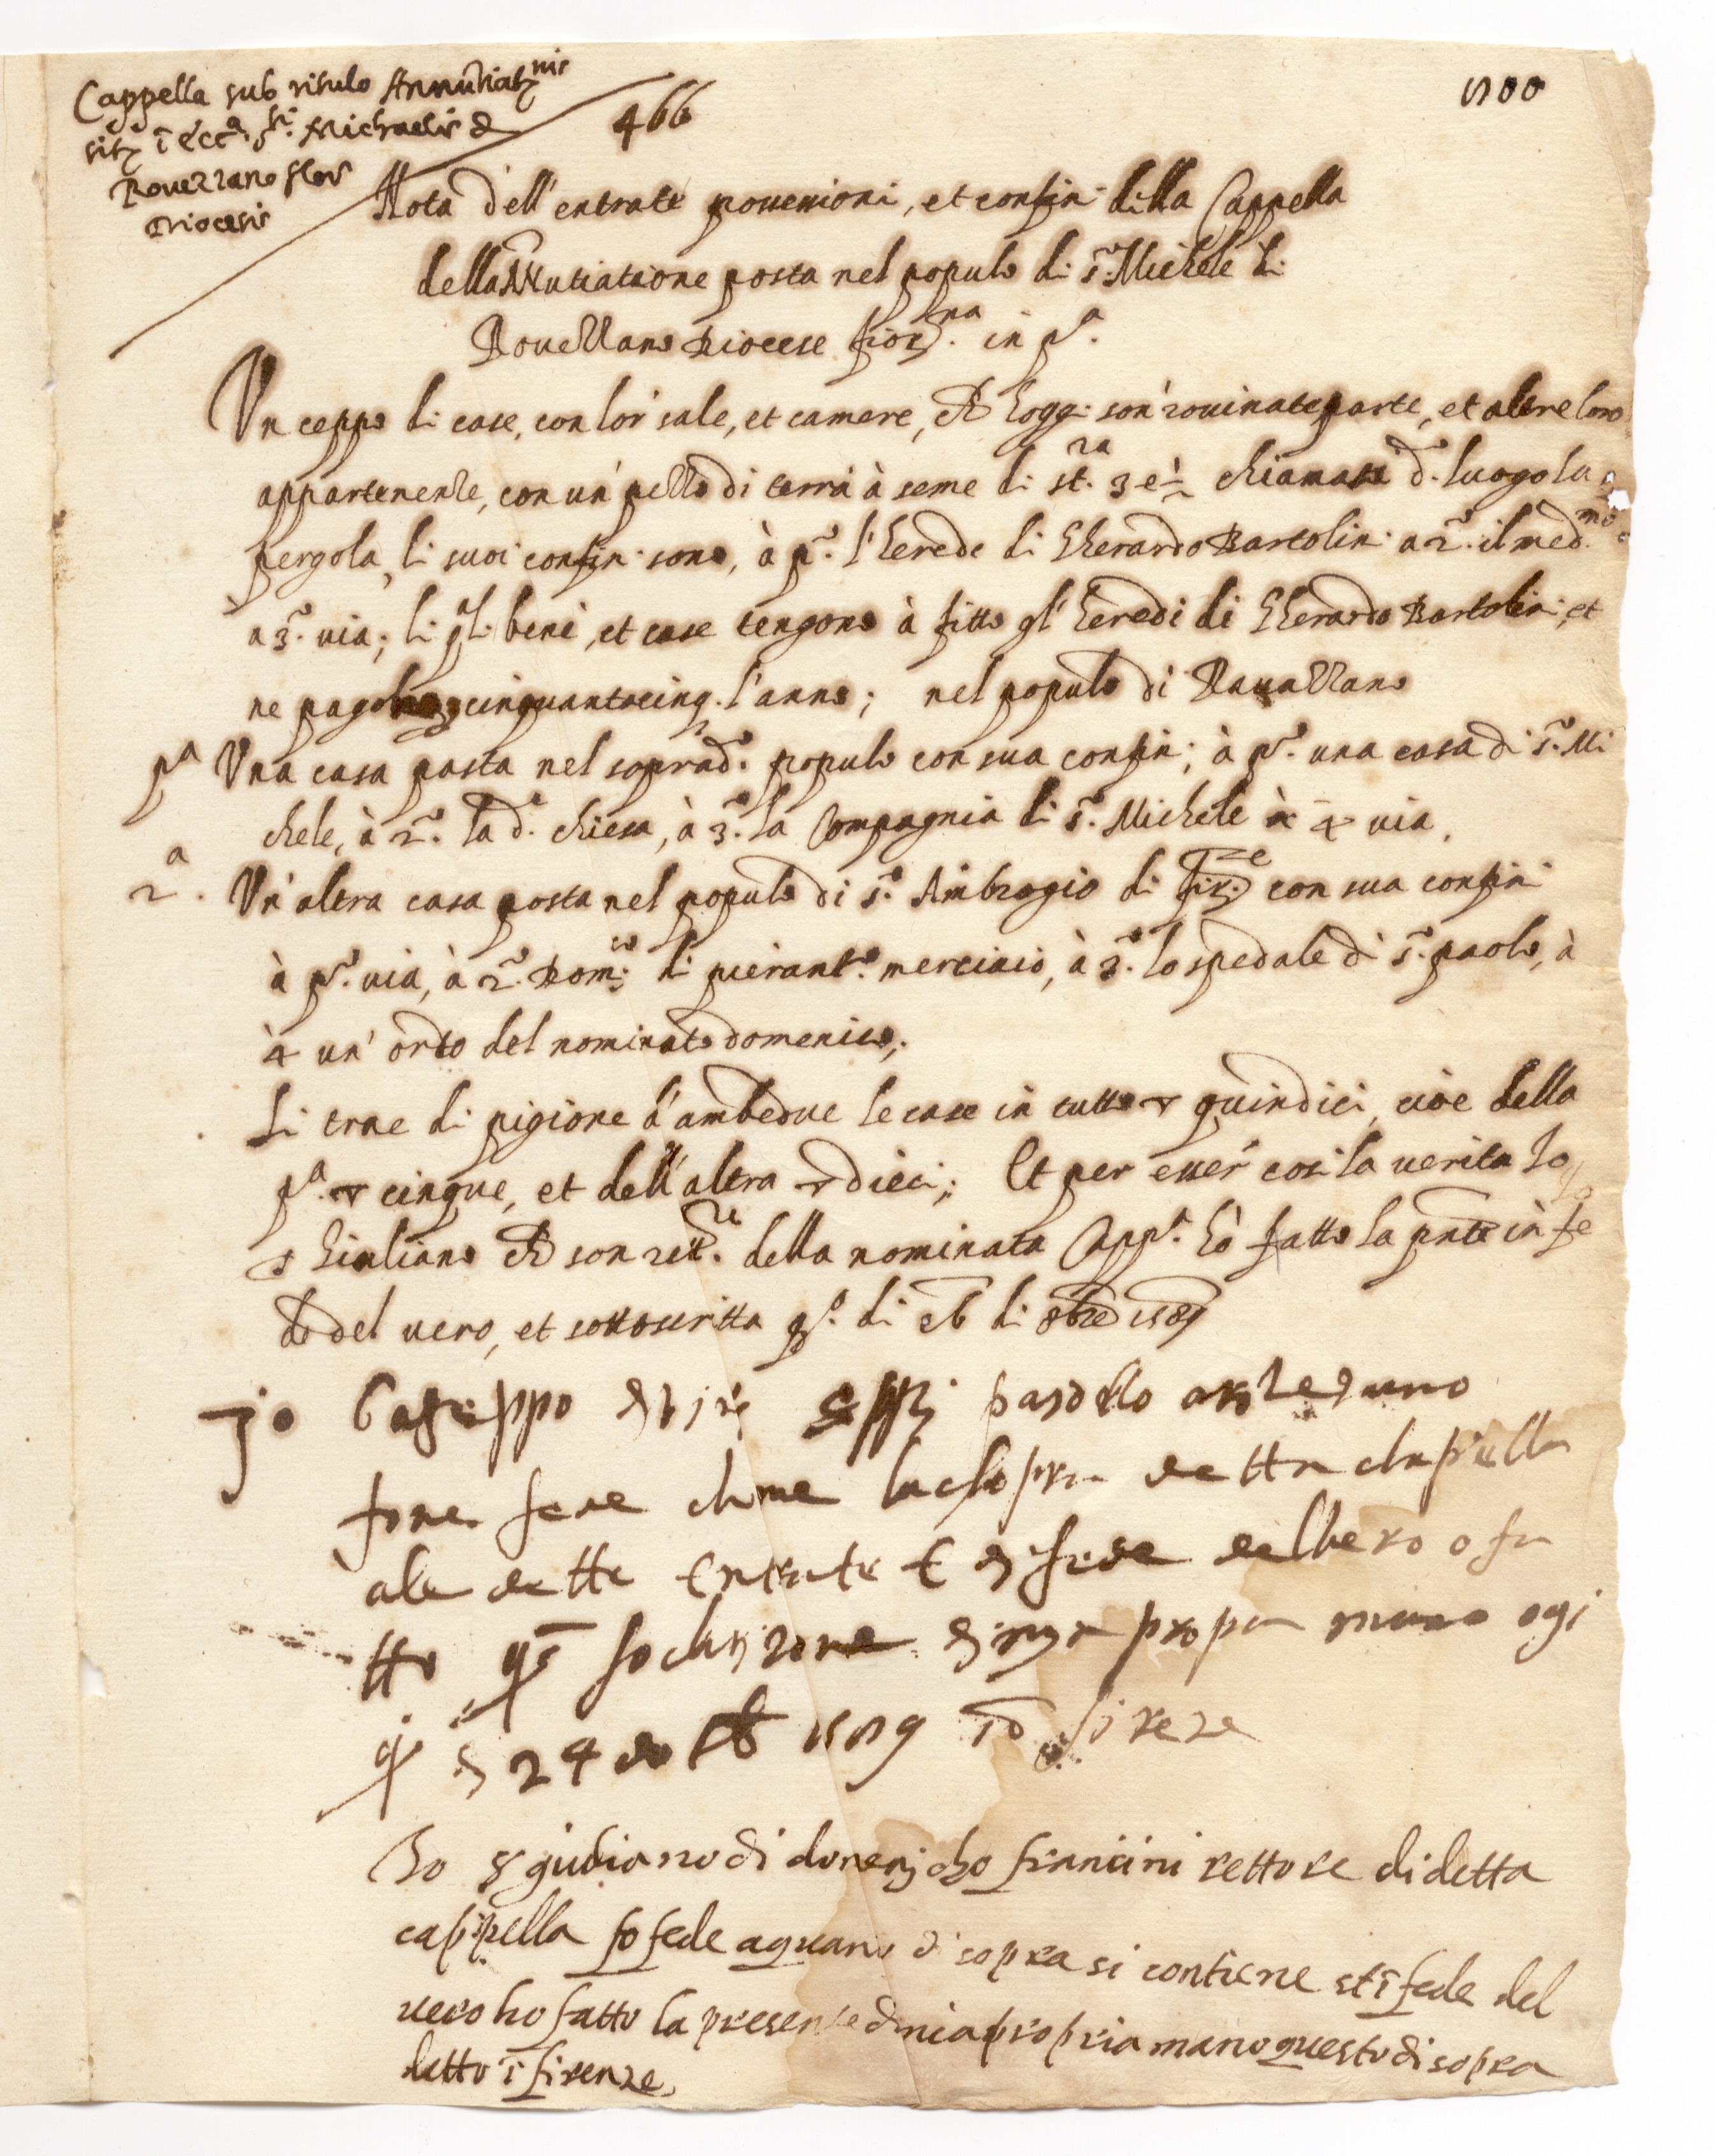 Cappella sub titulo Annūtiat^nis
sitę ī ecc^a s^ti Michaelis d
Rovezzano flor
Diocesis
466
1500
Nota dell'entrate possessioni, et confini della Cappella
della Annutiatione posta nel populo di s.º Michele di
Rovezzano Diocese fior.^na in p.ª
Un ceppo di case, con lor' sale, et camere, ch hoggi son' rovinate parte, et altre loro
appartenenze, con un' pezzo di terra à seme di st.^ra 3 e ½ chiamata d.º luogo la
pergola, li suoi confini sono, à p.º l'herede di Gherardo Bartolini a 2.º il med.^mo
a 3.º via; li q̃li beni, et case tengono à fitto gl'heredi di Gherardo Bartolini, et
ne pagono cinquantacinq. l'anno; nel populo di Rovezzano
p^a Una casa posta nel soprad.º populo con sua confini; à p.º una casa di s.º Mi
chele, à 2.º la d.ª chiesa, à 3.º la Compagnia di s.º Michele à 4 via.
2.^a Un'altra casa posta nel populo di s.º Ambrogio di fir.^ze con sua confini
à p.º via, à 2.º Dom.^co di pierant.º merciaio, à 3.º lo spedale di s.º paolo, à
à 4 un' orto del nominato domenico;
Si trae di pigione d'ambedue le case in tutto quindici, cioe della
p.ª cinque, et dell'altra dieci; Et per esser' cosi la verita Io
s Giuliano ch son rett.^re della nominata Capp.ª hò fatto la pnte in fe
de del vero, et sottoscritta q.º di 26 di 8bre 1589
jo
fone fede chome la sopra detta chapella
a le dette entrate e di fede del vero o fa
tto q^s sochrizone di mya propia mano ogi
q di 24 1589 fireze
Io s giuliano di domenicho francini rettore di detta
cappella fo fede a quanto di sopra si contiene et ī fede del
vero ho fatto la presente di mia propria mano questo di sopra
detto ī firenze.